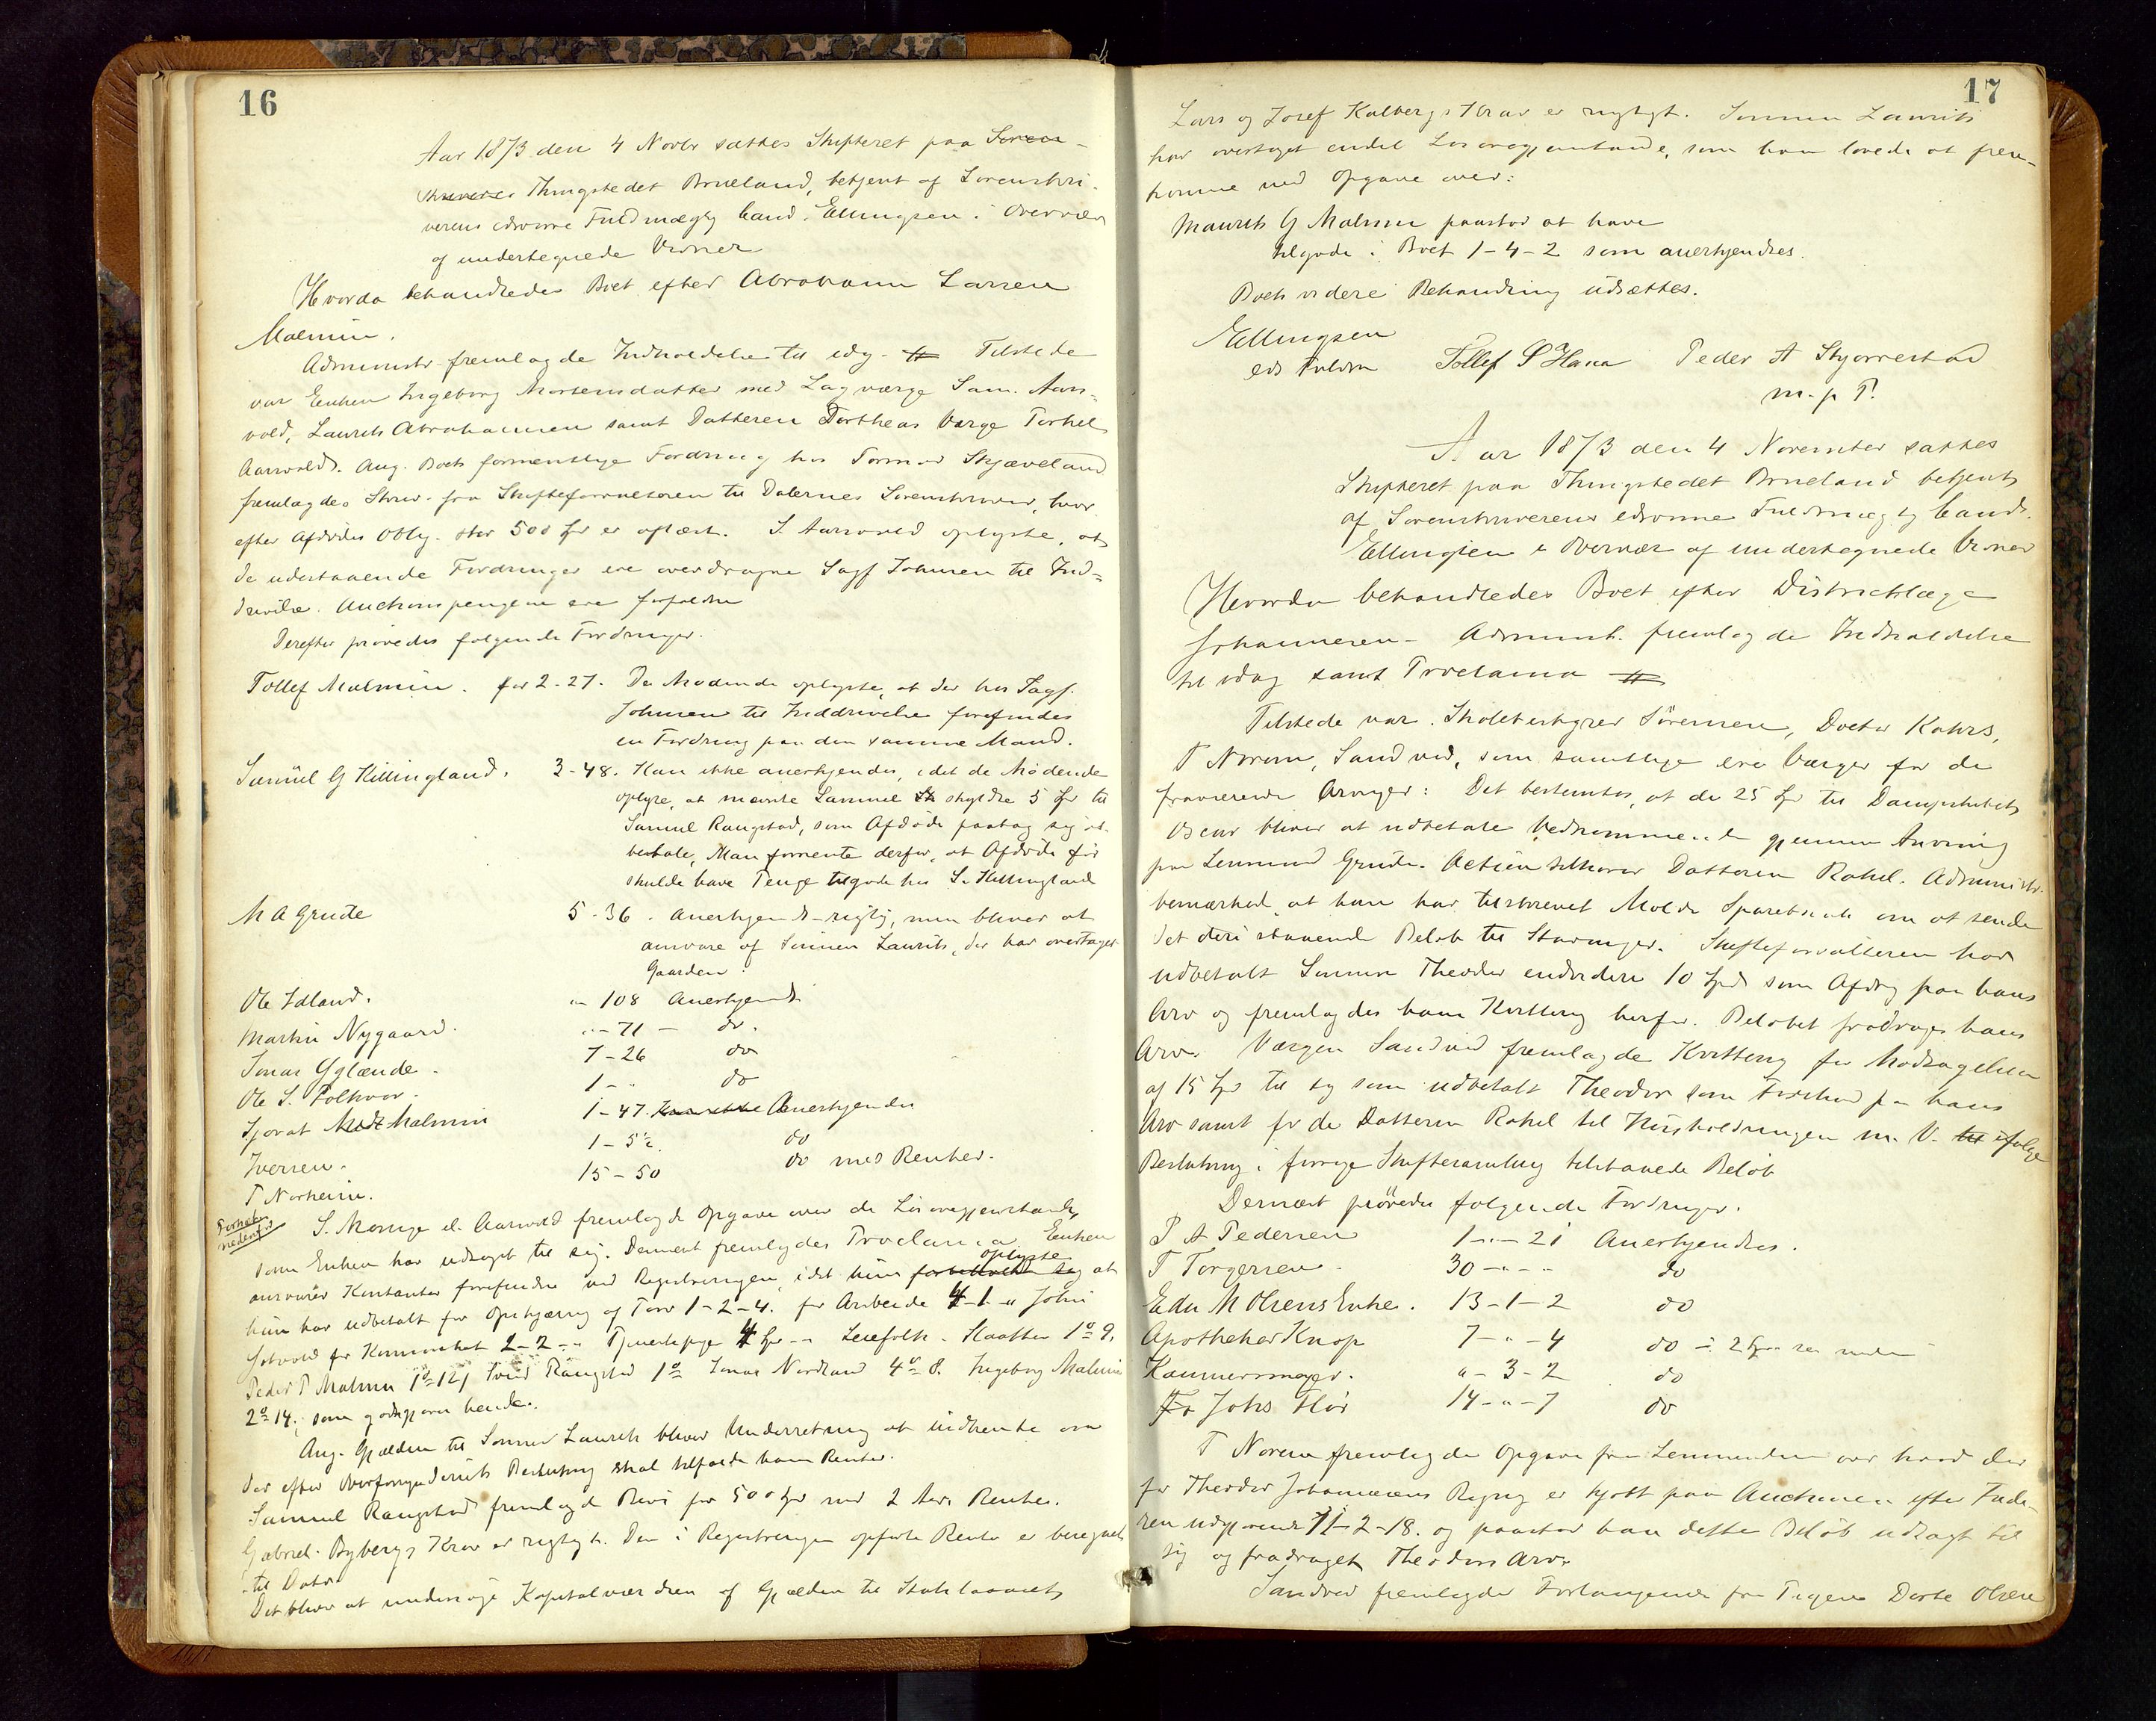 16
Aar 1873 den 4 Novbr sattes Skifteret paa Soren-
skriveres Thingstedet Brueland, betjent af Sorenskri-
verens edsvorne Fuldmægtig Cand. Ellingsen i Overvær
af undertegnede Vidner
Hvorda behandledes Boet efter Abraham Larsen
Malmin.
Administr fremlagde Indkaldelse til idag. Tilstede
var Enken Ingeborg Mortensdatter med Lagværge Sam. Aars-
vold, Laurits Abrahamsen samt Datteren Dortheas Værge Torkel
Aarsvold. Ang. Boets formentlige Fordring hos Tormod Skjæveland
fremlagdes Skriv. fra Skifteforvalteren til Dalernes Sorenskriver, hvor
efter Afdødes Oblig. stor 500 Spd er aflæst. S. Aarsvold oplyste, at
de udestaaende Fordringer ere overdragne Sagf Johnsen til Ind-
drivelse. Auctionspengene ere forfaldne
Derefter prøvedes følgende Fordringer.
Tollef Malmin. for 2-27. De Mødende oplyste, at der hos Sagf.
Johnsen til Inddrivelse forefindes
en Fordring paa den samme Mand.
Samuel G Killingland. 3-48. Kan ikke anerkjendes, idet de Mødende
oplyse, at nævnte Samuel skyldte 5 Spd til
Samuel Rangstad, som Afdøde paatog sig at
betale, Man formente derfor, at Afdøde før
skulde have Penge tilgode hos S. Killingland
M A Grude 5-36. Anerkjendt rigtig, men bliver at
ansvare af Sønnen Laurits, der har overtaget
Gaarden.
Ole Idland. " 108 Anerkjendt
Martin Nygaard. "-71 - do.
Jonas Gjlænde. 7-26 do
Ole S. Folkvor. 1-" do
Sjovat Malmin 1-47. Kan ikke Anerkjendes
Iversen. 1-5½ do
T Norheim. 15-50 do med Renter.
nedenfor
S. Mauge el. Aarsvold fremlagde Opgave over de Løsøregjenstande
som Enken har udtaget til sig. Dernæst fremlagdes Proclama. Enken
oplyste
ansvarer Kontanter forefundne ved Registreringen, idet hun forbeholdt sig at
hun har udbetalt for Opkjøring af Torv 1-2-4. for Arbeide 4-1-" John
for Kornsnit 2-2-" Tjenestepige 4 Spd " Leiefolk - Slaatten 1 9.
Peder T Malmin 1 12 Rangstad 1 Jonas Nordland 4 8. Ingeborg Malmin
2 14, som godtgjøres hende.
Ang. Gjælden til Sønnen Laurits bliver Underretning at indhente om
der efter Overformynderiets Beslutning skal tilfalde ham Renter.
Samuel Rangstad fremlagde Bevis for 500 Spd med 2 Aars Renter.
Gabriel Bybergs Krav er rigtigt. Den i Registreringen opførte Rente er beregnet
til Dato
Det bliver at undersøge Kapitalværdien af Gjælden til Statslaanet
17
Lars og Josef Kalbergs Krav er rigtigt. Sønnen Laurits
har overtaget endel Løsøregjenstande, som han lovede at frem-
komme med Opgave over:
Maurits G Malmin paastod at have
tilgode i Boet 1-4-2 som anerkjendtes.
Boets videre Behandling udsættes.
Ellingsen
eds Fuldm Tollef P Hana Peder A Skjørrestad
m. p. P.
Aar 1873 den 4 November sattes
Skifteret paa Thingstedet Brueland betjent
af Sorenskriverens edsvorne Fuldmægtig Cand.
Ellingsen i Overvær af undertegnede Vidner
Hvorda behandledes Boet efter Districtslæge
Johannesen - Administ. fremlagde Indkaldelse
til idag samt Proclama
Tilstede var. Skolebestyrer Sörensen, Doctor Kahrs,
T Norem, Sandved, som samtlige ere Værger for de
fraværende Arvinger: Det bestemtes, at de 25 Spd til Dampskibet
Oscar bliver at udbetale Vedkommende gjennem Anvisning
paa Lensmand Grude. Actien tilhører Datteren Rakel. Administr.
bemærked, at han har tilskrevet Molde Sparebank om at sende
det deri staaende Beløb til Stavanger. Skifteforvalteren har
udbetalt Sønnen Theodor endvidere 10 Spd som Afdrag paa hans
Arv og fremlagdes hans Kvittering herfor. Beløbet fradrages hans
Arv. Værgen Sandved fremlagde Kvittering for Modtagelsen
af 15 Spd til sig som udbetalt Theodor som Forskud paa hans
Arv samt for de Datteren Rakel til Husholdningen m. V. til ifølge
Beslutning i forrige Skiftesamling tilstaaede Beløb
Dernæst prövedes følgende Fordringer.
P A Pedersen 1-"-21 Anerkjendtes.
T Torgersen. 30-"-" do
Edv M Olsens Enke. 13-1-2 do
Apotheker Knop 7-"-4 do
Kammermeyer. "-3-2 do
Fr Johs Flör 14-"-7 do
T Norem fremlagde Opgave fra Lensmanden over hvad der
for Theodor Johannesens Regning er kjøbt paa Auctionen efter Fade-
ren udgjørende 71-2-18. og paastod han dette Beløb udlagt til
sig og fradraget Theodors Arv.
Sandved fremlagde Forlangende fra Pigen Dorte Olsen